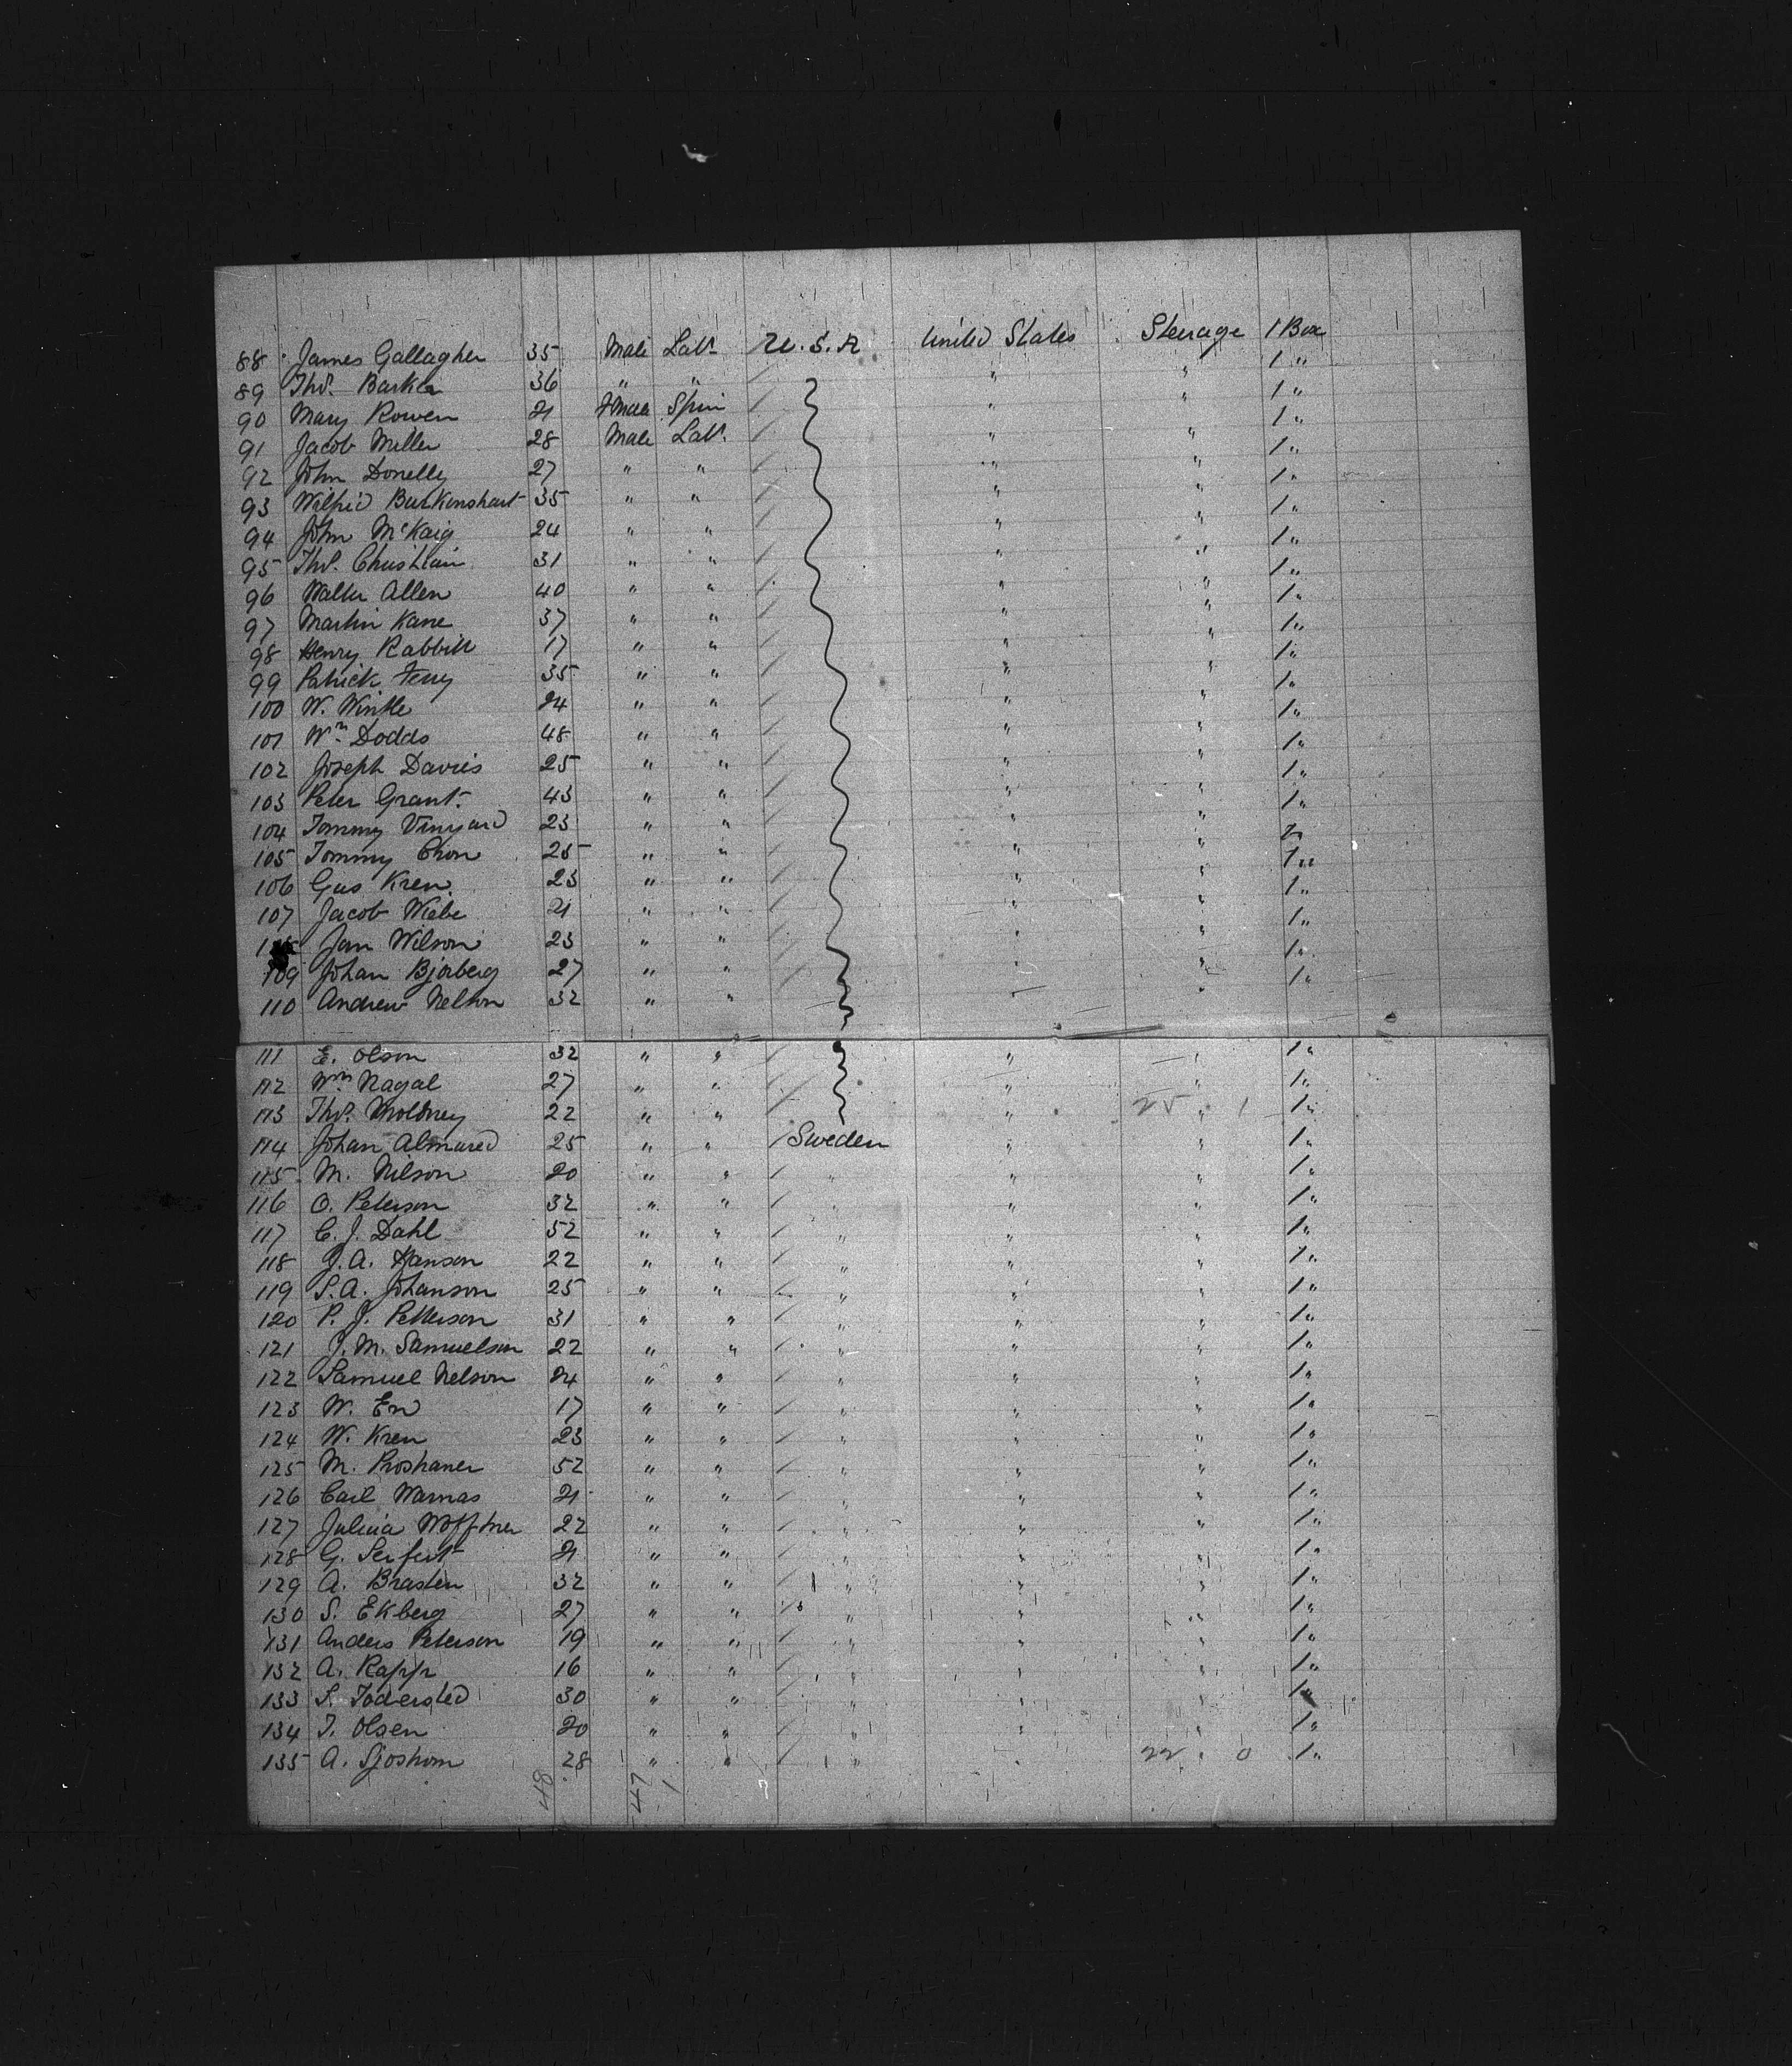 88 James Gallagher 35 Male Labr U.S.A United States Steerage 1 Box
89 Thos. Barker 36 " " " " 1 "
90 Mary Rowen 21 Fmale Spin " " 1 "
91 Jacob Miller 28 Male Labr. " " 1 "
92 John Donelly 27 " " " " 1 "
93 Wilfrid Burkinshart 35 " " " " 1 "
94 John McKaig 24 " " " " 1 "
95 Thos. Christian 31 " " " " 1 "
96 Walter Allen 40 " " " " 1 "
97 Martin Kane 37 " " " " 1 "
98 Henry Rabbitt 17 " " " " 1 "
99 Patrick Ferry 35 " " " " 1 "
100 W. Winkle 24 " " " " 1 "
101 Wm Dodds 48 " " " " 1 "
102 Joseph Davies 25 " " " " 1 "
103 Peter Grant. 43 " " " " 1 "
104 Tommy Vinyard 23 " " " " 1 "
105 Tommy Chon 25 " " " " 1 "
106 Gus Kren. 23 " " " " 1 "
107 Jacob Wiebe 21 " " " " 1 "
Jan Wilson 23 " " " " 1 "
109 Johan Bjorberg 27 " " " " 1 "
110 Andrew Nelson 32 " " " " 1 "
111 E. Olson 32 " " " " 1 "
112 Wm Nagal 27 " " " " 1 "
113 Thos. Moloney 22 " " " 25 " 1 1 "
114 Johan Almared 25 " " Sweden " " 1 "
115 M. Nilson 20 " " " " " 1 "
116 O. Peterson 32 " " " " " 1 "
117 C. J. Dahl 52 " " " " " 1 "
118 J. A. Hanson 22 " " " " " 1 "
119 S. A. Johanson 25 " " " " " 1 "
120 P. J. Petterson 31 " " " " " 1 "
121 J. M. Samuelson 22 " " " " " 1 "
122 Samuel Nelson 24 " " " " " 1 "
123 W. En 17 " " " " " 1 "
124 W. Kren 23 " " " " " 1 "
125 M. Proshaner 52 " " " " " 1 "
126 Carl Warnas 21 " " " " " 1 "
127 Julina 22 " " " " " 1 "
128 G. Seifert 21 " " " " " 1 "
129 A. Brasten 32 " " " " " 1 "
130 S. Ekberg 27 " " " " " 1 "
131 Anders Peterson 19 " " " " " 1 "
132 A. Rapp 16 " " " " " 1 "
133 S. Todersted 30 " " " " " 1 "
134 T. Olsen 20 " " " " " 1 "
135 A. Sjoshom 28 " " " " 22 " 0 1 "
48 47 1